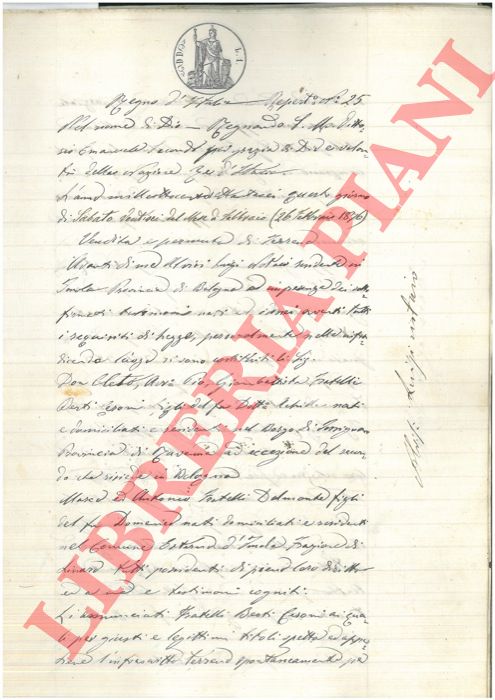 L. 1
Regno d'Italia — Repert. N. 25
Nel nome di Dio — Regnando S. M. Vitto-
rio Emanuele secondo per grazia di Dio e volon-
tà della Nazione Re d'Italia
L'anno milleottocento questo giorno
di Sabato Ventisei del Mese di Febbraio (26 Febbraio 1876)
Vendita e permuta di Terreni
Avanti di me Luigi residente in
Imola Provincia di Bologna ed in presenza dei sotto-
firmati testimoni noti ed idonei aventi tutti
i requisiti di legge, personalmente nella infra-
dicenda si sono costituiti li Sig.
Don Cleto, Pio, Giambattista Fratelli
Berti Ceroni figli del fu Achille nati
e domiciliati e residenti nel
Provincia di Ravenna ad eccezione del secon-
do che risiede in Bologna
Marco ed Antonio Fratelli Delmonte figli
del fu Domenico nati domiciliati e residenti
nel Comune Esterno d'Imola Frazione di
Linaro tutti possidenti di pieno loro diritto
e a me e testimoni cogniti.
Li annunciati Fratelli Berti Ceroni ai qua-
li per giusti e legittimi titoli spetta ed appar-
tiene l'infrascritto terreno spontaneamente per
Luigi notaro
LIBRERIA PIANI